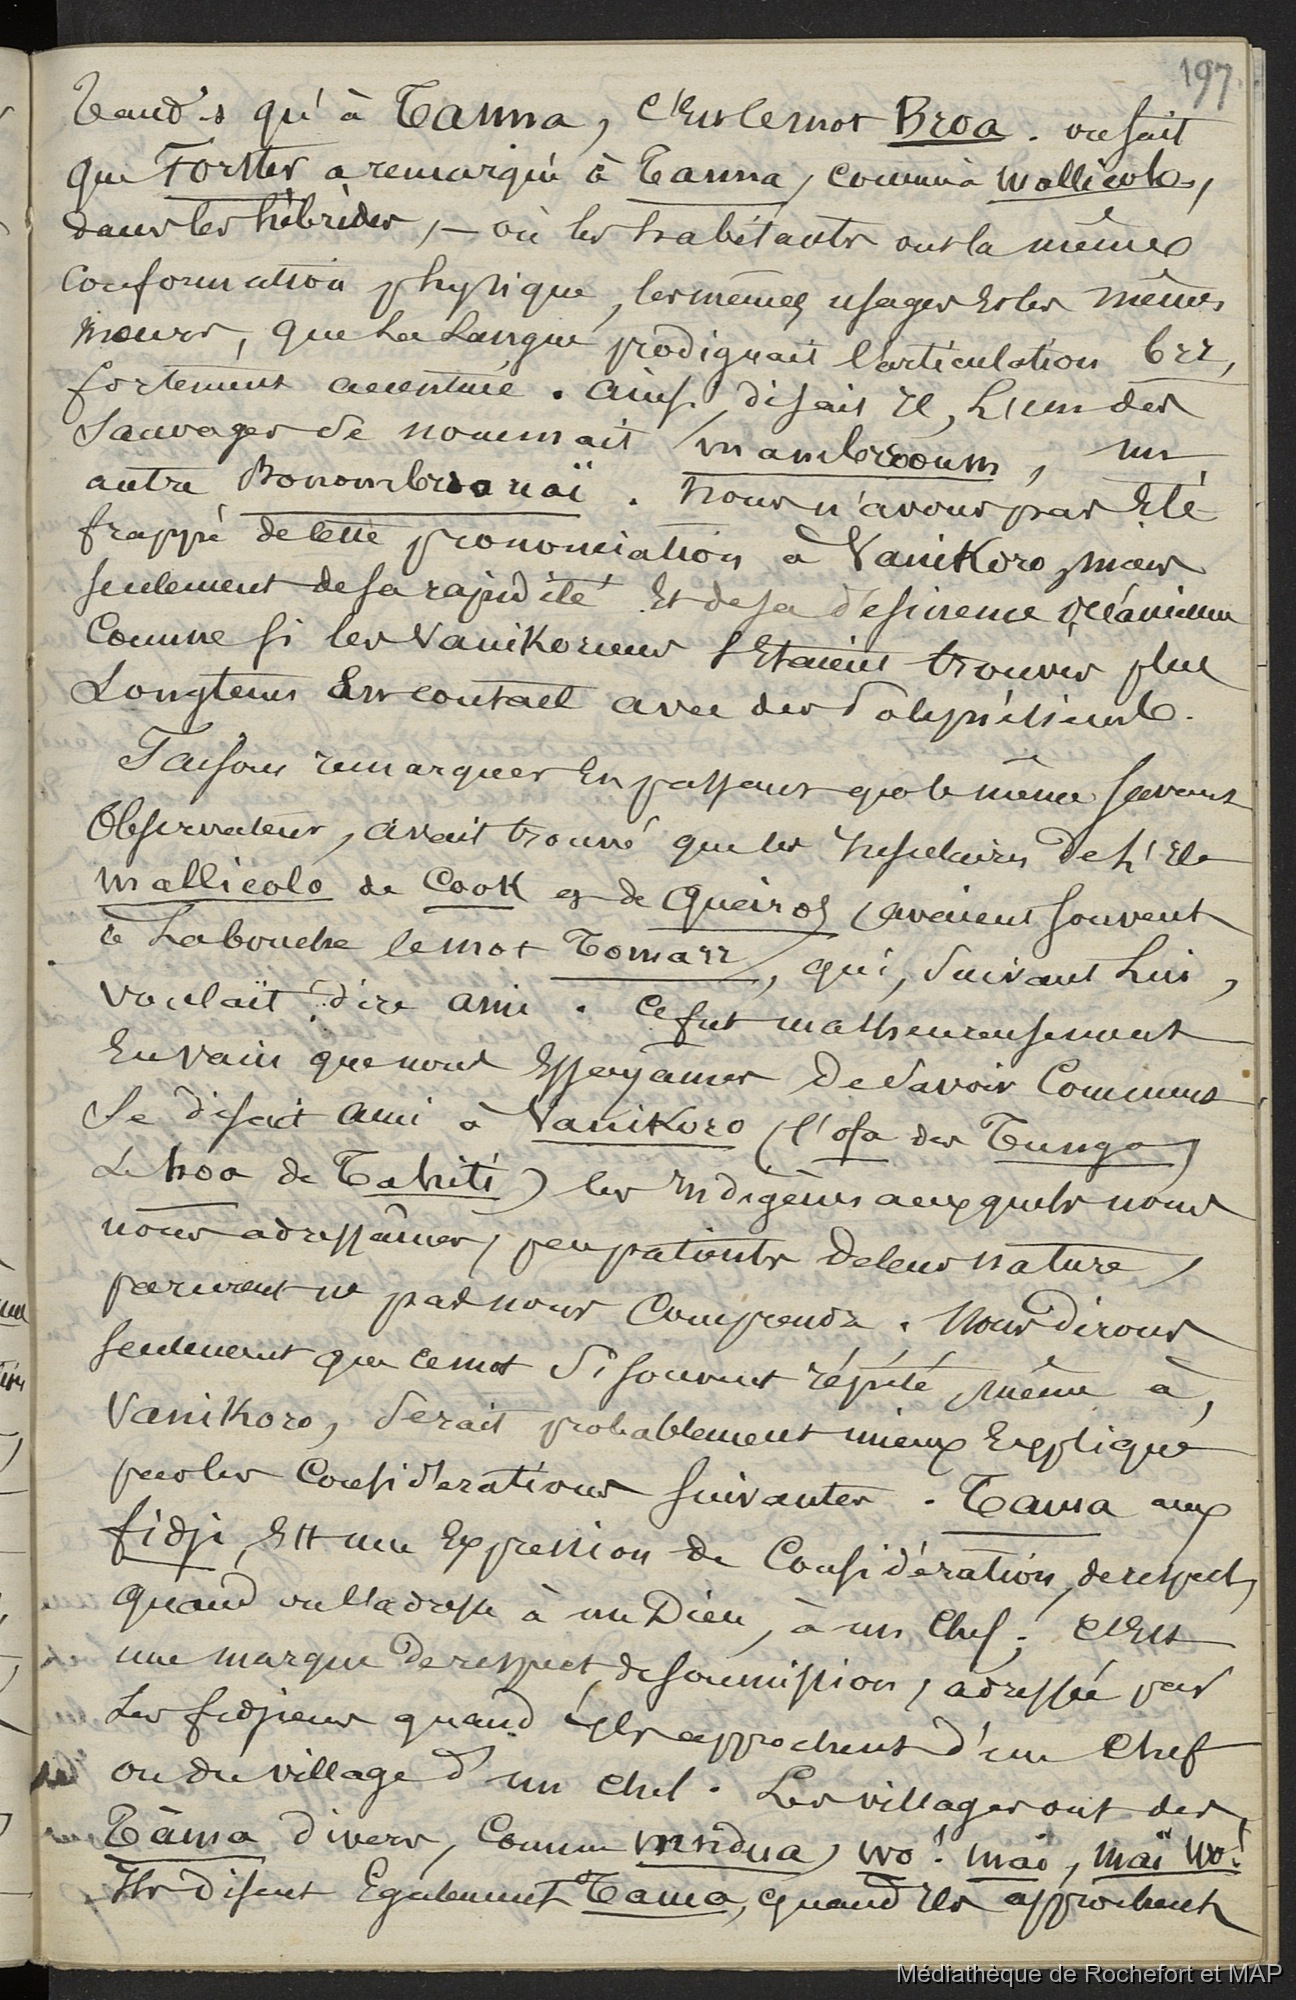 197
Tandis qu'à Tanna, c'est le mot Broa. on sait
que Forster a remarqué à Tanna, comme à Mallicolo,
dans les hébrides, – où les habitants ont la même
conformation physique, les mêmes usages et les mêmes
mœurs, que la langue prodiguait l'articulation brr,
fortement accentuée. ainsi, disait il, l'un des
sauvages se nommait Mambrooum, un
autre Bonombrooaï. Nous n'avons pas été
frappé de cette prononciation à Vanikoro, mais
seulement de sa rapidité et de sa désinence océanienne
comme si les Vanikoriens s'étaient trouvés plus
Longtems en contact avec des Polynésiens.
Faisons remarquer en passant que le même savant
Observateur, avait trouvé que les insulaires de l'ile
Mallicolo de Cook et de Queiros, avaient souvent
à la bouche le mot Tomarr, qui, suivant lui,
voulait dire ami. Ce fut malheureusement
en vain que nous essayames de savoir comment
se disait ami à Vanikoro (l'ofa des Tunga,
Le hoa de Tahiti) les indigènes auxquels nous
nous adressâmes, peu patients de leur nature,
parurent ne pas nous comprendre. Nous dirons
seulement que ce mot si souvent répété, même à,
Vanikoro, serait probablement mieux expliqué
par les considérations suivantes. Tama aux
fidji, est une expression de considération, de respect,
quand on l'adresse à un Dieu, à un Chef; c'est
une marque de respect, de soumission, adressée par
les fidjiens quand ils approchent d'un chef
ou du village d'un chef. Les villages ont des
Tâma divers, comme Mudua, wo! maï, maï wo!
Ils disent également Tama, quand ils approchent
Médiathèque de Rochefort et MAP